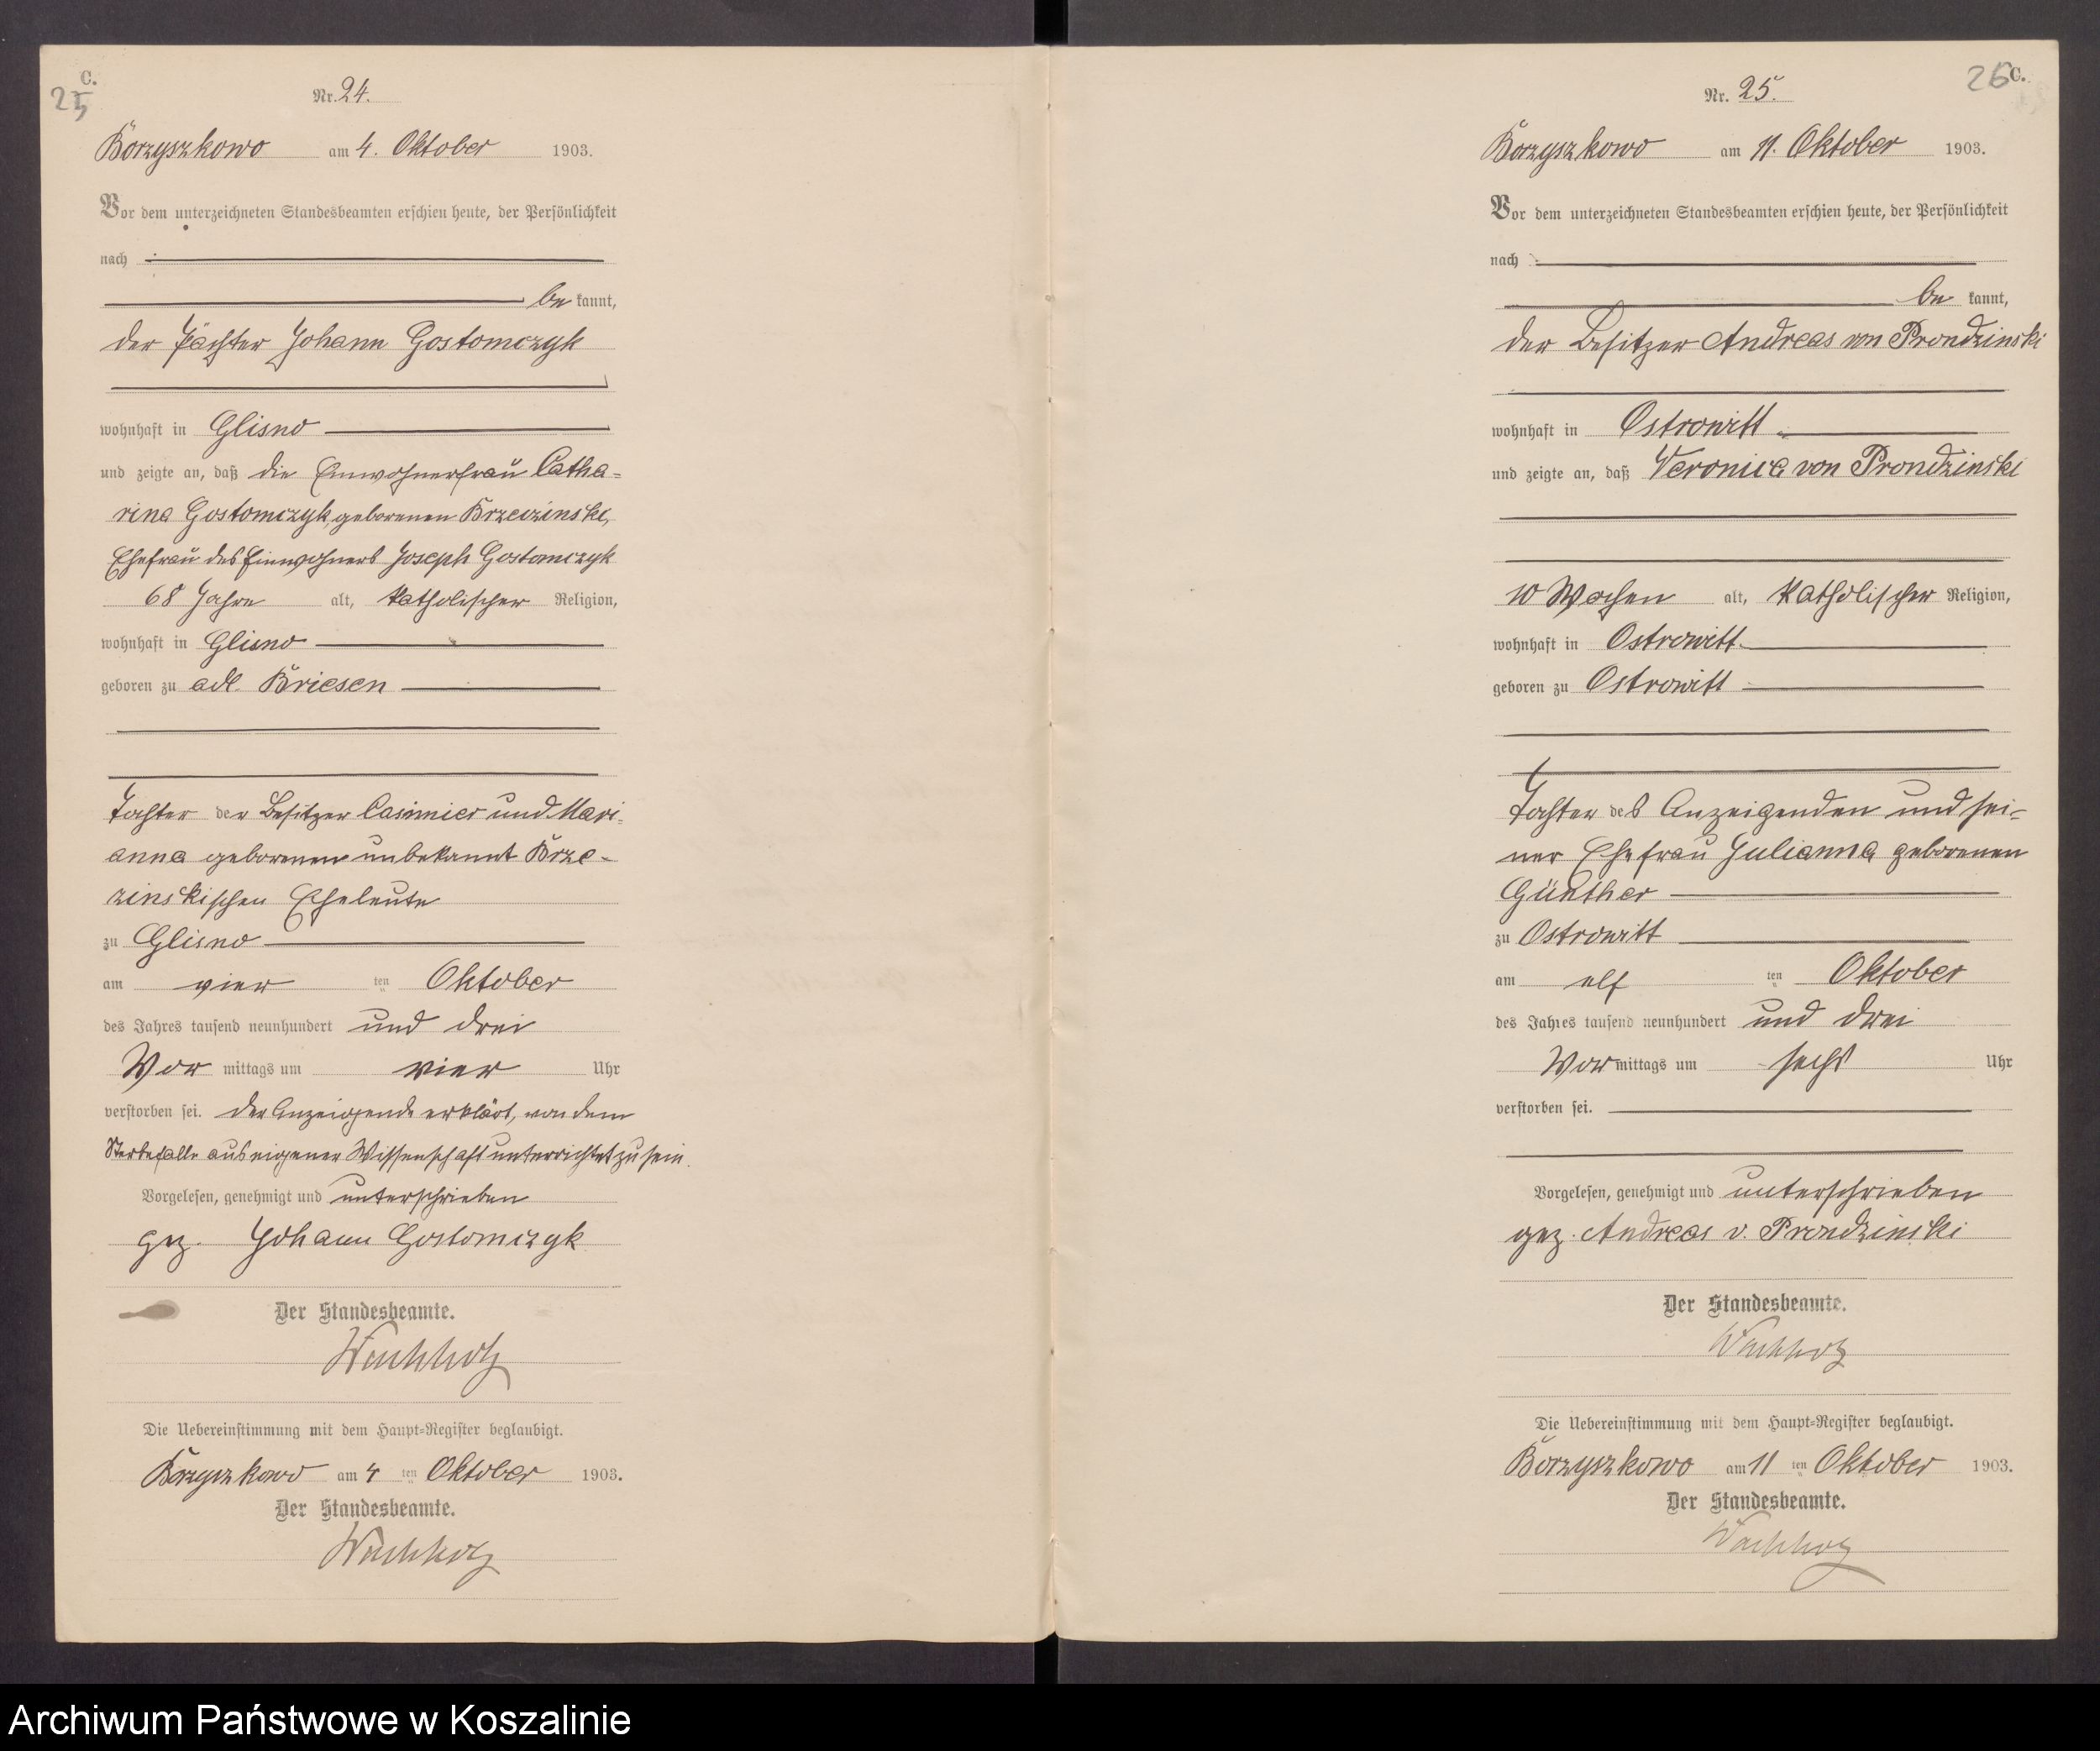 C.
25
Nr. 24.
Borzyszkowo am 4. Oktober 1903.
Vor dem unterzeichneten Standesbeamten erschien heute, der Persönlichkeit
nach
be kannt,
der Pächter Johann Gostomczyk
wohnhaft in Glisno
und zeigte an, daß die Einwohnerfrau Catha=
rina Gostomczyk, geborenen Brzezinski,
Ehefrau des Einwohners Joseph Gostomczyk
68 Jahre alt, katholischer Religion,
wohnhaft in Glisno
geboren zu adl. Briesen
Tochter der Besitzer Casimier und Mari-
anna geborenen unbekannt Brze-
zinskischen Eheleute
zu Glisno
am vier ten Oktober
des Jahres tausend neunhundert und drei
Vor mittags um vier Uhr
verstorben sei. Der Anzeigende erklärt, von dem
Sterbefalle aus eigener Wissenschaft unterrichtet zu sein.
Vorgelesen, genehmigt und unterschrieben
gez. Johann Gostomczyk
Der Standesbeamte.
Wachholz
Die Uebereinstimmung mit dem Haupt=Register beglaubigt.
Borzyszkowo am 4 ten Oktober 1903.
Der Standesbeamte.
Wachholz
26 C.
Nr. 25.
Borzyszkowo am 11. Oktober 1903.
Vor dem unterzeichneten Standesbeamten erschien heute, der Persönlichkeit
nach
be kannt,
der Besitzer Andreas von Prondzinski
wohnhaft in Ostrowitt
und zeigte an, daß Veronica von Prondzinski
10 Wochen alt, katholischer Religion,
wohnhaft in Ostrowitt
geboren zu Ostrowitt
Tochter des Anzeigenden und sei=
ner Ehefrau Julianna geborenen
Günther
zu Ostrowitt
am elf ten Oktober
des Jahres tausend neunhundert und drei
Vor mittags um sechs Uhr
verstorben sei.
Vorgelesen, genehmigt und unterschrieben
gez. Andreas v. Prondzinski
Der Standesbeamte.
Wachholz
Die Uebereinstimmung mit dem Haupt=Register beglaubigt.
Borzyszkowo am 11 ten Oktober 1903.
Der Standesbeamte.
Wachholz
Archiwum Państwowe w Koszalinie